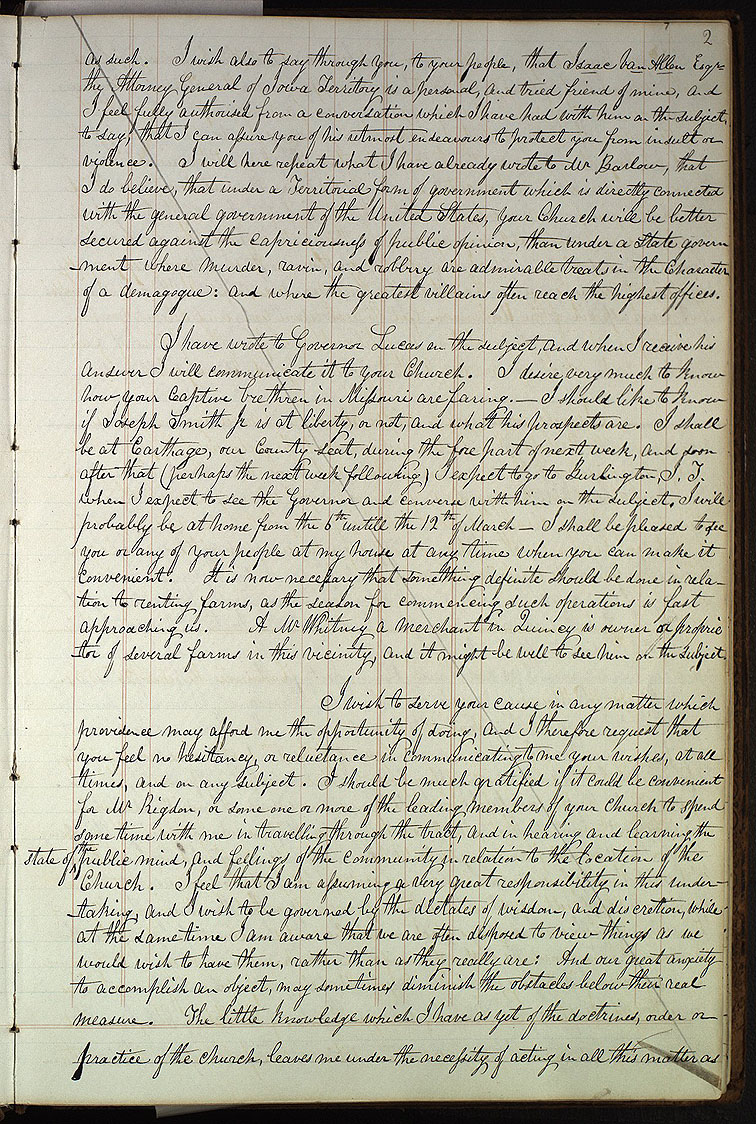 2
as such. I wish also to say through you, to your people, that Isaac Van Allen Esqr
the Attorney General of Iowa Territory is a personal, and tried friend of mine, and
I feel fully authorised from a conversation which I have had with him on the subject,
to say, that I can assure you of his utmost endeavours to protect you from insult or
violence. I will here repeat what I have already wrote to Mr Barlow, that
I do believe, that under a Territorial form of government which is directly connected
with the general government of the United States, your Church will be better
secured against the capriciousness of public opinion, than under a State govern
-ment where murder, ravin, and robbery are admirable treats in the Character
of a demagogue: and where the greatest villains often reach the highest offices.
I have wrote to Governor Lucas on the subject, and when I receive his
answer I will communicate it to your Church. I desire very much to know
how your Captive brethren in Missouri are faring. — I should like to know
if Joseph Smith Jr is at liberty, or not, and what his prospects are. I shall
be at Carthage, our County Seat, during the fore part of next week, and soon
after that (perhaps the next week following) I expect to go to Burlington, I. T.
when I expect to see the Governor and converse with him on the subject. I will
probably be at home from the 6th untill the 12th of March — I shall be pleased to see
you or any of your people at my house at any time when you can make it
convenient. It is now necessary that something definite should be done in rela-
tion to renting farms, as the season for commencing such operations is fast
approaching us. A Mr Whitney a merchant in Quincy is owner or proprie
-tor of several farms in this vicinity, and it might be well to see him on the subject.
I wish to serve your cause in any matter which
providence may afford me the opportunity of doing, and I therefore request that
you feel no hesitancy, or reluctance in communicating to me your wishes, at all
times, and on any subject. I should be much gratified if it could be convenient
for Mr Rigdon, or some one or more of the leading members of your church to spend
some time with me in travelling through the tract, and in hearing and learning the
state of the public mind, and feelings of the community in relation to the location of the
Church. I feel that I am assuming a very great responsibility in this under-
-taking, and I wish to be governed by the dictates of wisdom, and discretion, while
at the same time I am aware that we are often disposed to view things as we
would wish to have them, rather than as they really are: And our great anxiety
to accomplish an object, may sometimes diminish the obstacles below their real
measure. The little knowledge which I have as yet of the doctrines, order or
practice of the church, leaves me under the necessity of acting in all this matter as